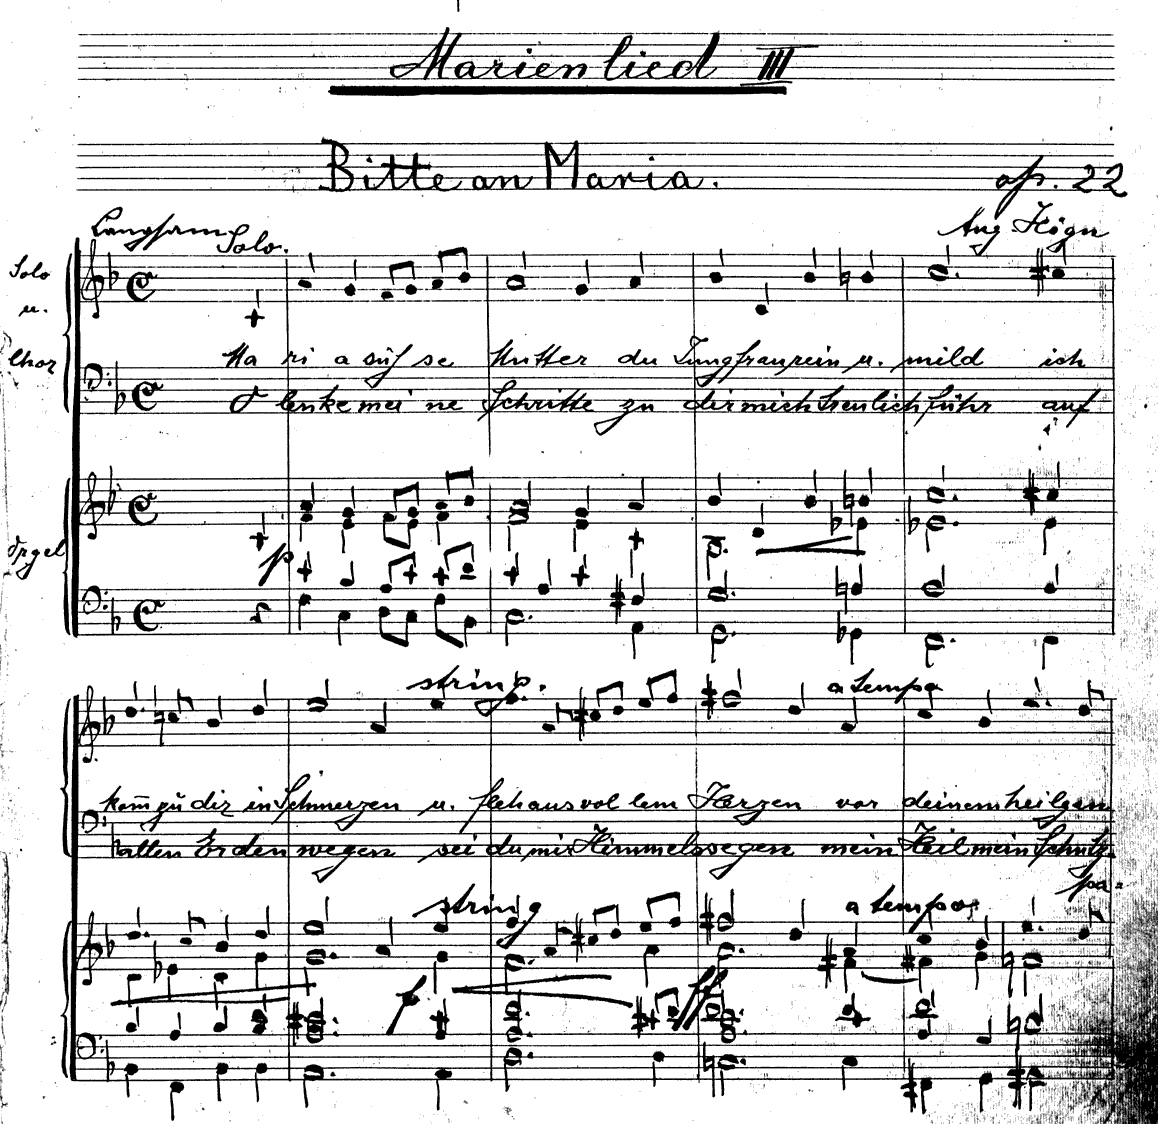 Marienlied III
Bitte an Maria.
op. 22
Langsam Solo.
Aug Högn
Solo
u.
Chor
Ma ri a süß se Mutter du Jungfrau rein u. mild ich
O lenke mei ne Schritte zu dir mich treulich führ auf
Orgel
p
string.
a tempo
kom̅ zu dir in Schmerzen u. fleh aus vol lem Herzen vor deinem heilgen
allen Erden wegen sei du mir Himmelssegen mein Heil mein Schutz
pa-
string
a tempo
f
ff